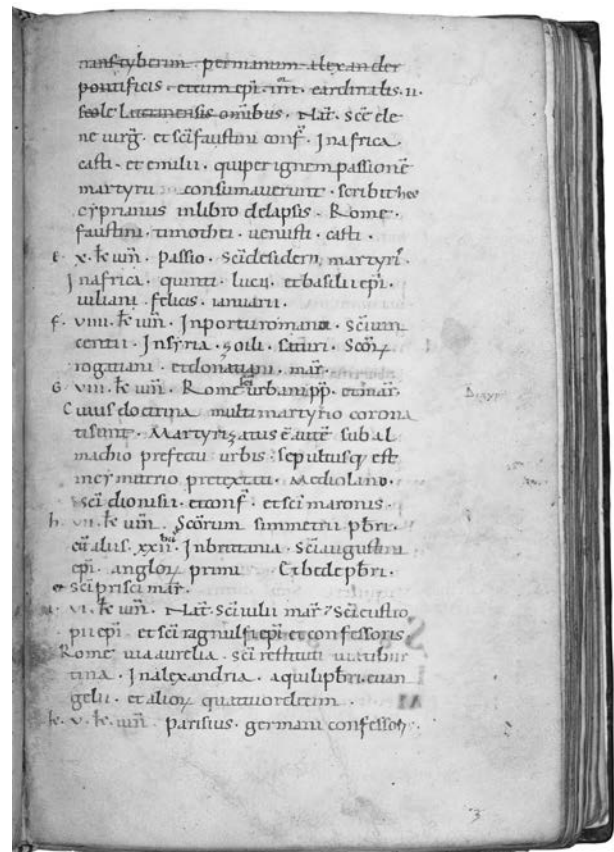 transtyberim · permanum alexander
pontificis · etcum ep̄i · IIII · cardinalis · II ·
scole Lateranensis omībus · Nat̄ · Sc̄e ele
ne uirḡ · et sc̄i faustini conf̄ · Inafrica ·
casti · et emilii · quiper ignem passionē
martyrii consumauerunt · scribit hec
cyprianus inlibro delapsis · Rome ·
faustini · timothei · uenusti · casti ·
e x · kl̄ iun̄ · Passio · Sc̄i desiderii martyrī
Inafrica · quinti · lucii · et basilii ep̄i ·
iuliani · felicis · ianuarii ·
f · VIIII · kl̄ iun̄ · Inportu romano · Sc̄i uin
centii · Insyria · zoili · saturi · Sc̄or̄
rogatiani · et donatiani · mar̄ ·
G VIII · kl̄ iun̄ · Rome urbani pp̄ · et mar̄ ·
Cuius doctrina multi martyrio corona
ti sunt · Martyrizatus ē autē sub al
machio prefectu urbis · sepultusq; est
incymiterio pretextati · Mediolano ·
sc̄i dionisii · et conf̄ · et sc̄i maronis ·
h · VII · kl̄ iun̄ · Sc̄orum simmetrii pb̄ri ·
cū aliis · XXII · Inbrittania · Sc̄i augustini
ep̄i · anglor̄ primi · Et bede pb̄ri ·
et Sc̄i prisci mar̄ ·
VI · kl̄ iun̄ · Nat̄ · Sc̄i iulii mar̄ · Sc̄i eutro
pii ep̄i · et sc̄i ragnulfi ep̄i et confessoris
Rome uia aurelia · Sc̄i restituti uiatibur
tina · Inalexandria · aquili pb̄ri · euan
gelii · et alior̄ quattuordecim ·
k · V · kl̄ iun̄ · Parisius · germani confessor̄ ·
3